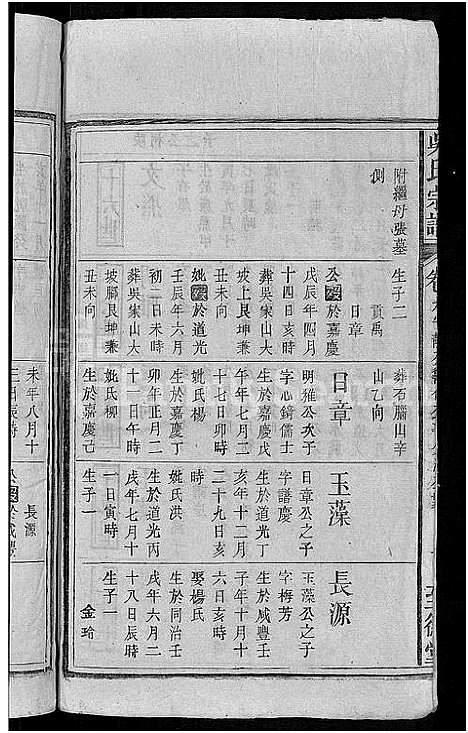 吳氏宗譜
附繼母張墓
側
生子二
貢禹
日章
公歿於嘉慶
戊辰年四月
十四日亥時
葬吳宋山大
坡上艮坤兼
丑未向
妣歿於道光
壬辰年六月
初一日未時
葬吳宋山大
坡腳艮坤兼
丑未向
葬石腦山辛
山乙向
日章
明雅公次子
字心鏡儒士
生於嘉慶戊
午年七月二
十七日卯時
妣氏楊
生於嘉慶丁
卯年正月二
十一日午時
妣氏柳
生於嘉慶己
玉藻
日章公之子
字譜慶
生於道光丁
亥年十二月
二十九日亥
時
妣氏洪
生於道光丙
戌年七月十
一日寅時
生子一
長源
玉藻公之子
字梅芳
生於咸豐壬
子年十月十
六日亥時
娶楊氏
生於同治壬
戌年六月二
十八日辰時
生子一
金玲
未年八月十
長源